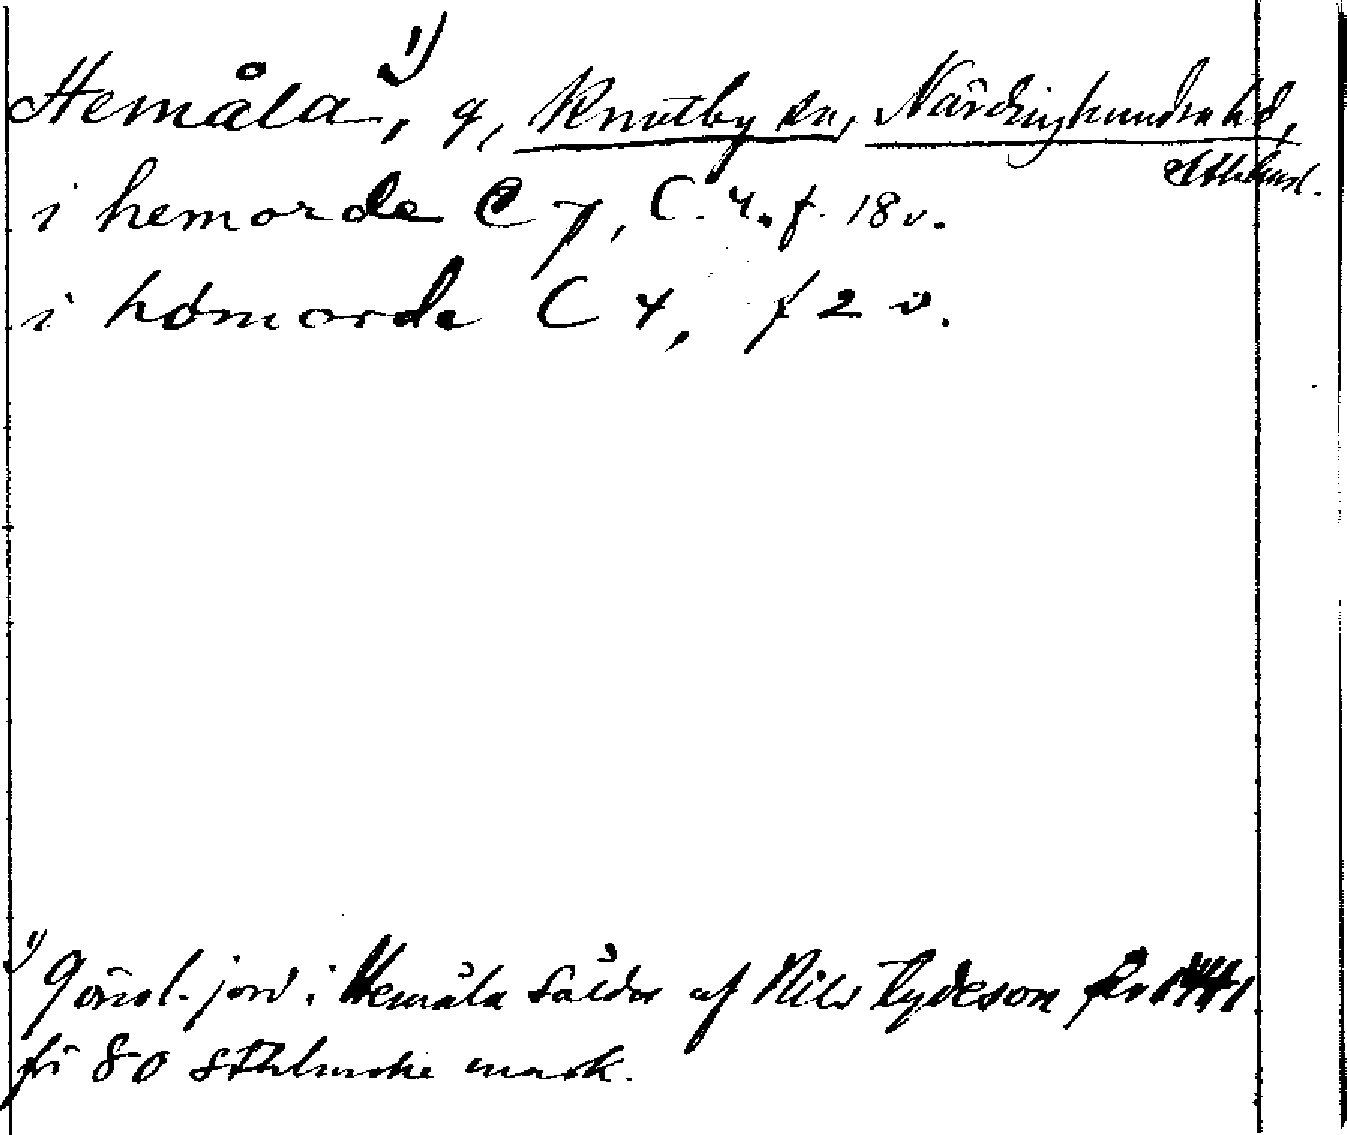 Hemåla ¹⁾, g, Knutby sn, Närdinghundra hd,
Sthlmsl.
i hemorde C 7, C. 4. f. 18 v.
i hömorde C 4, f 2 v.
¹⁾ jord i Hemåla såldes af Nils Tydeson år 1441
för 80 sthlmske mark.